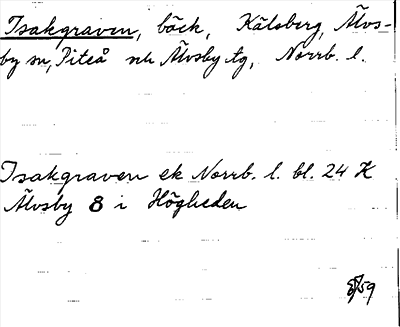 Isakgraven, bäck, Kälsberg, Älvs-
by sn, Piteå och Älvsby tg, Norrb. l.
Isakgraven ek Norrb. l. bl. 24 K
Älvsby 8 i Högheden
59